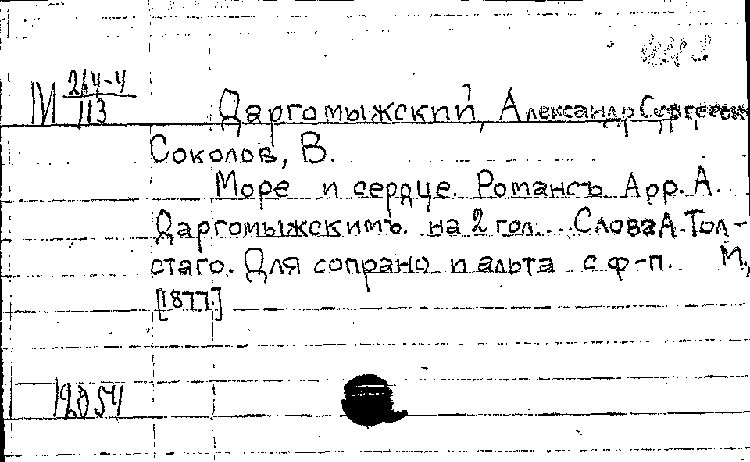 М 264-4/113
Даргомыжский, Александр Сергеевич
Соколов, В.
Море и сердце. Романсъ Арр. А.
Даргомыжскимъ. на 2 гол... Слова А. Тол-
стаго. Для сопрано и альта с ф-п. М.,
[1877.]
12054